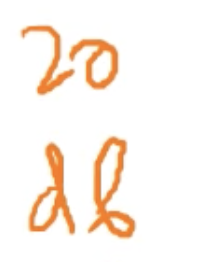 20
db